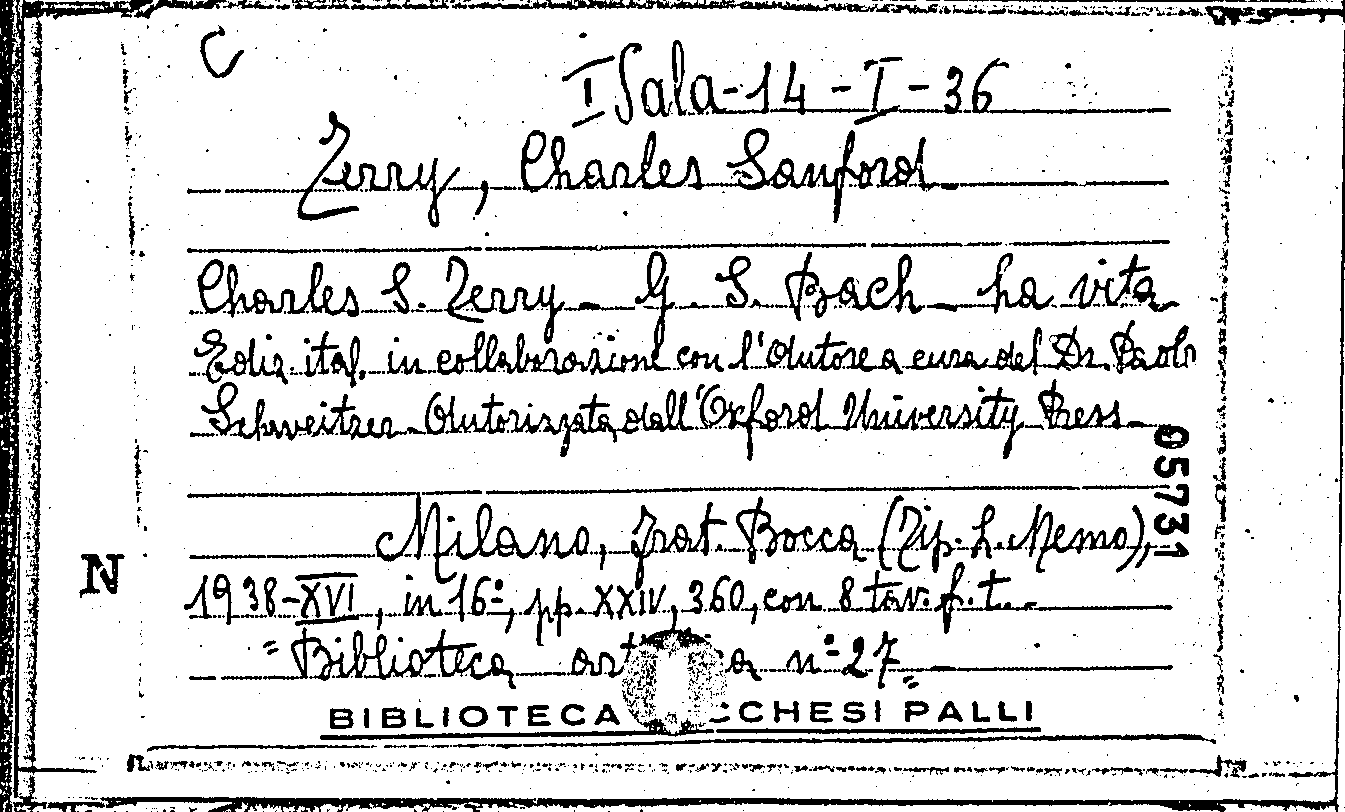 C
I Sala-14-I-36
Terry, Charles Sanford
Charles S. Terry - G. S. Bach - La vita
Ediz. ital. in collaborazione con l'Autore a cura del Dr. Paolo
Schweitzer - Autorizzata dall'Oxford University Press -
05731
Milano, Frat. Bocca (Tip. L. Memo),
N
1938-XVI, in 16º, pp. XXIV, 360, con 8 tav. f. t. -
"Biblioteca art ca nº 27"
BIBLIOTECA CCHESI PALLI